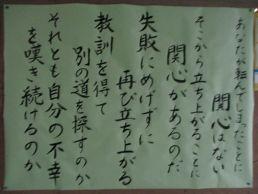 あなたが転んでしまったことに
関心はない
そこから立ち上がることに
関心があるのだ
失敗にめげずに
再び立ち上がる
教訓を得て
別の道を探すのか
それとも自分の不幸
を嘆き続けるのか